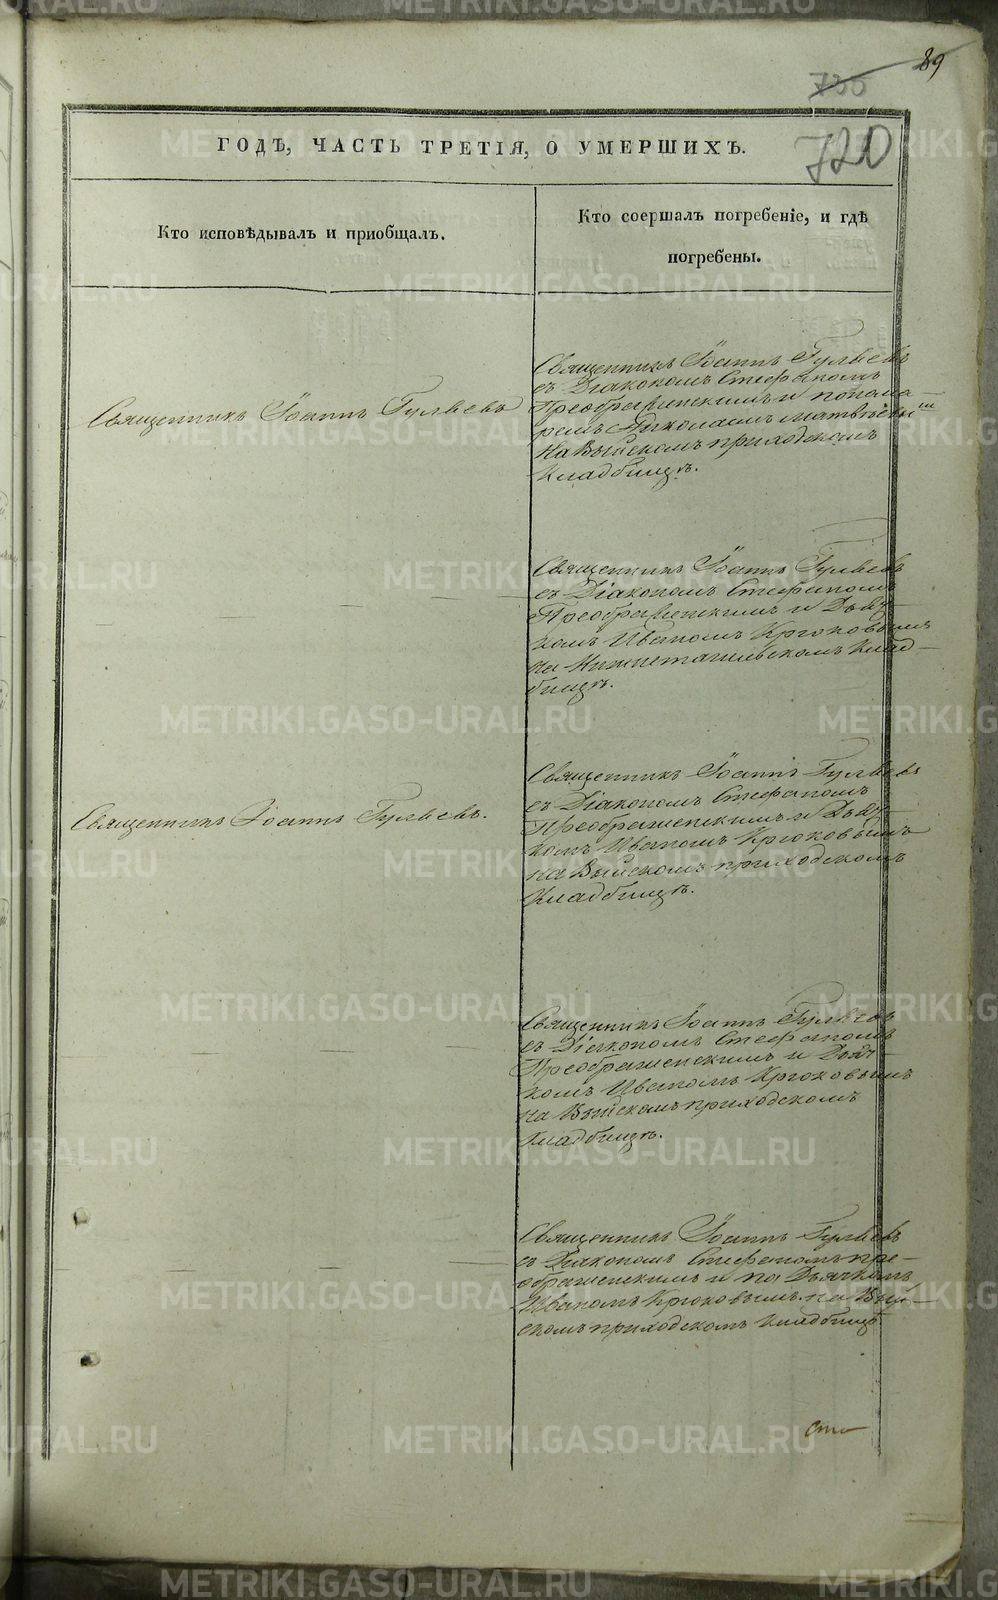 89
730
720
ГОДѢ, ЧАСТЬ ТРЕТІЯ, О УМЕРШИХЪ.
Кто исповѣдывалъ и приобщалъ.
Кто соершалъ погребеніе, и гдѣ
погребены.
Священникъ Іоаннъ Гуляевъ
Священникъ Іоаннъ Гуляевъ
съ Діакономъ Стефаномъ
Преображенскимъ и понома
ремъ Николаемъ Матвѣевы
На Выйскомъ приходскомъ
Кладбищѣ.
Священникъ Іоаннъ Гуляевъ
съ Діакономъ Стефаномъ
Преображенскимъ и Дьяч-
комъ Иваномъ Крюковымъ
На Нижнетагильскомъ Клад-
бищѣ.
Священникъ Іоаннъ Гуляевъ.
Священникъ Іоаннъ Гуляевъ
съ Діакономъ Стефаномъ
Преображенскимъ и Дьяч-
комъ Иваномъ Крюковымъ
на Выйскомъ приходскомъ
Кладбищѣ.
Священникъ Іоаннъ Гуляевъ
съ Діакономъ Стефаномъ
Преображенскимъ и Дьяч-
комъ Иваномъ Крюковымъ
На Выйскомъ приходскомъ
Кладбищѣ.
Священникъ Іоаннъ Гуляевъ
съ Діакономъ Стефаномъ Пре-
ображенскимъ и на Дьячкомъ
Иваномъ Крюковымъ на Вый-
скомъ приходскомъ кладбищѣ
METRIKI.GASO-URAL.RU